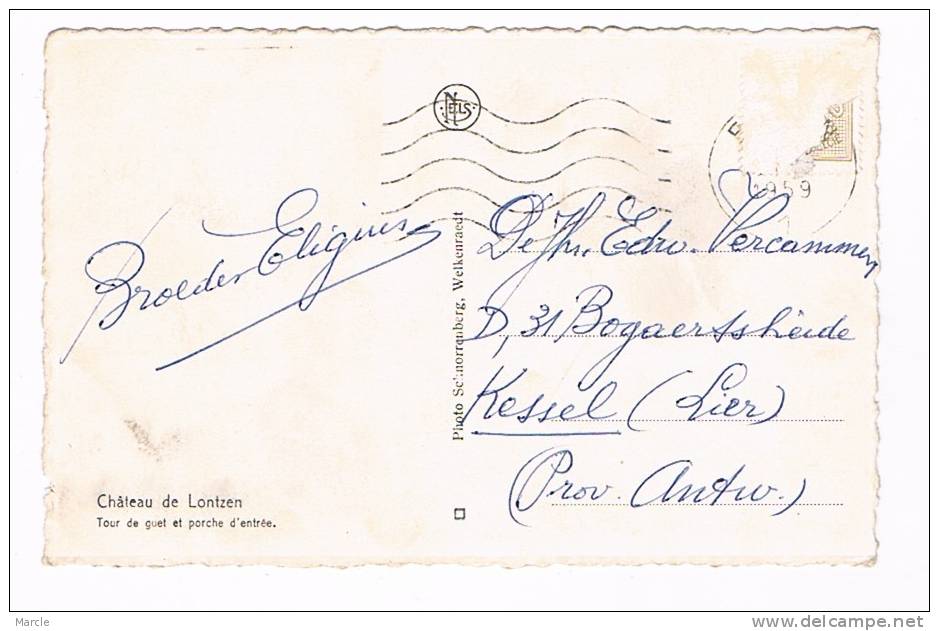 NELS
1959
Broeder Eligius
De Jhr. Edw. Vercammen
D, 31 Bogaertsheide
Kessel (Lier)
(Prov. Antw.)
Photo Schnorrenberg, Welkenraedt
Château de Lontzen
Tour de guet et porche d'entrée.
Marcle
delcampe.net